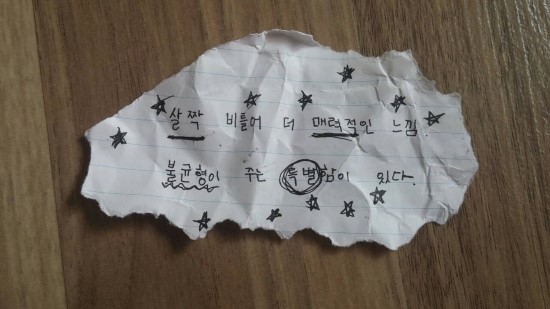 살짝 비틀어 더 매력적인 느낌
불균형이 주는 특별함이 있다.